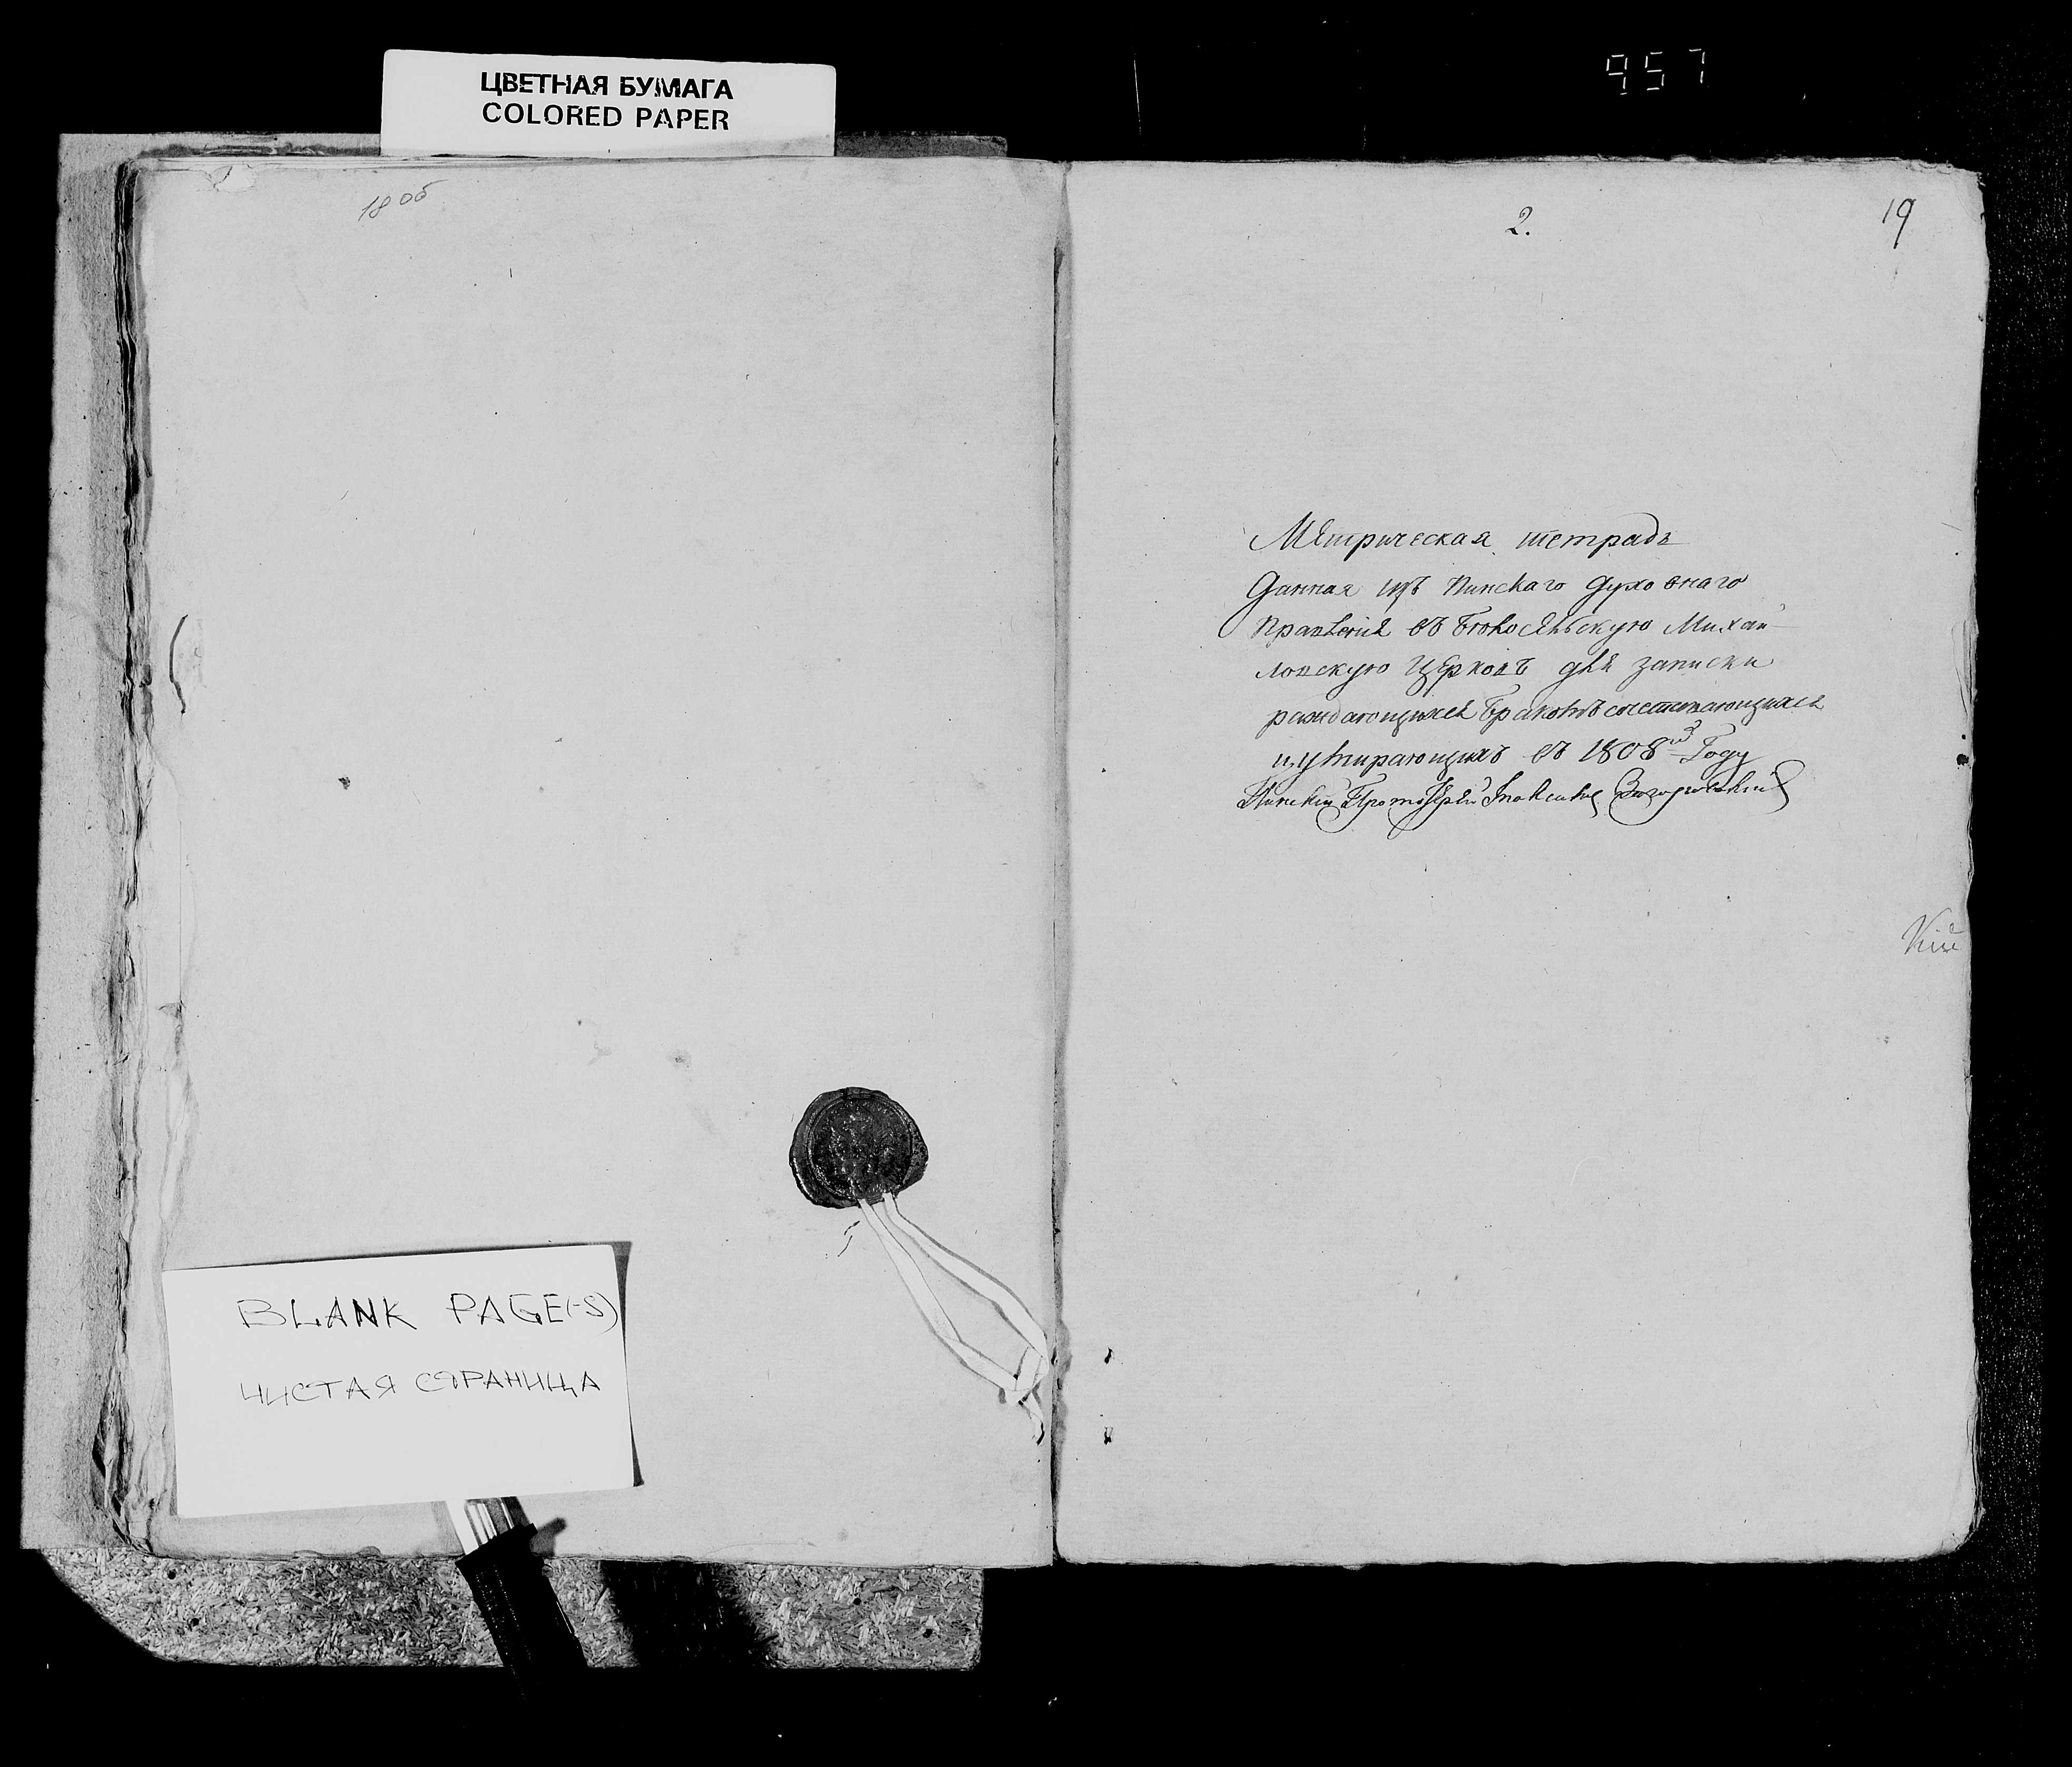 ЦВЕТНАЯ БУМАГА
COLORED PAPER
957
18 об
2.
19
Метрическая тетрадь
данная изъ Пинскаго духовнаго
Правленія въ Михай-
ловскую Церковь для записки
раждающихся браковъ сочетавающихся
и умирающихъ въ 1808м Году
Пинскій Протоіерей
кій
BLANK PAGE(-S)
ЧИСТАЯ СТРАНИЦА